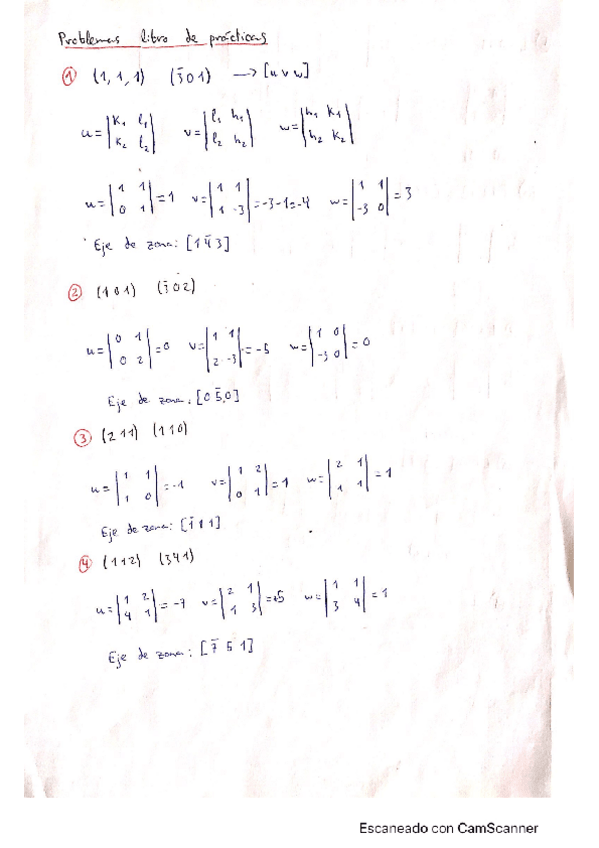 Problemas libro de prácticas
① (1,1,1) (3̄01) → [u v w]
u=|k₁ l₁; k₂ l₂| v=|l₁ h₁; l₂ h₂| w=|h₁ k₁; h₂ k₂|
u=|1 1; 0 1|=1 v=|1 1; 1 -3|=-3-1=-4 w=|1 1; -3 0|=3
Eje de zona: [1 4̄ 3]
② (101) (3̄02)
u=|0 1; 0 2|=0 v=|1 1; 2 -3|=-5 w=|1 0; -3 0|=0
Eje de zona: [0 5̄,0]
③ (211) (110)
u=|1 1; 1 0|=-1 v=|1 2; 0 1|=1 w=|2 1; 1 1|=1
Eje de zona: [1̄ 1 1]
④ (112) (341)
u=|1 2; 4 1|=-7 v=|2 1; 1 3|=+5 w=|1 1; 3 4|=1
Eje de zona: [7̄ 5 1]
Escaneado con CamScanner